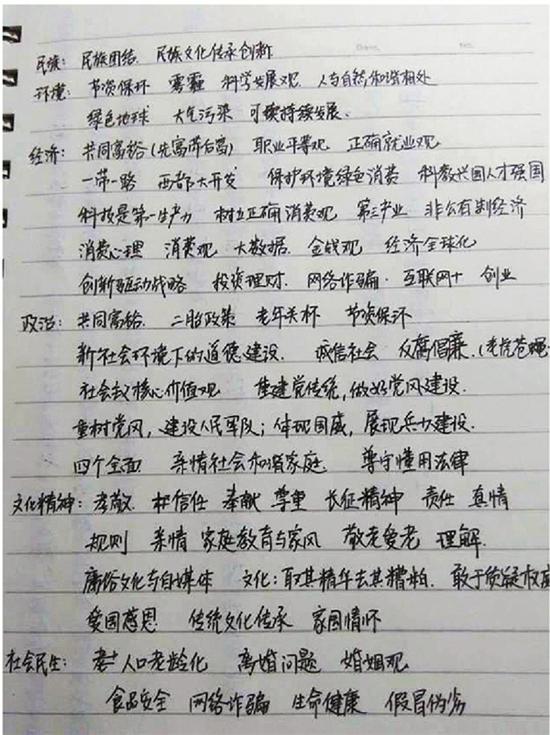 民族: 民族团结 民族文化传承创新
环境: 节资保环 雾霾 科学发展观 人与自然和谐相处
绿色地球 大气污染 可续持续发展.
经济: 共同富裕(先富带后富) 职业平等观 正确就业观
一带一路 西部大开发 保护环境绿色消费 科教兴国人才强国
科技是第一生产力 树立正确消费观 第三产业 非公有制经济
消费心理 消费观 大数据 金钱观 经济全球化
创新驱动战略 投资理财. 网络诈骗. 互联网+ 创业
政治: 共同富裕. 二胎政策 老年关怀 节资保环
新社会环境下的道德建设. 诚信社会 反腐倡廉.(老虎苍蝇
社会主义核心价值观 重建党传统,做好党风建设.
重树党风,建设人民军队;体现国威,展现兵力建设.
四个全面 亲情社会和谐家庭 尊守懂用法律
文化精神: 孝敬. 信任 奉献 尊重 长征精神 责任 真情
规则 亲情 家庭教育与家风 敬老爱老 理解.
庸俗文化与自媒体 文化:取其精华去其糟粕. 敢于质疑权威
爱国感恩 传统文化传承 家国情怀
社会民生: 人口老龄化 离婚问题 婚姻观
食品安全 网络诈骗 生命健康 假冒伪劣